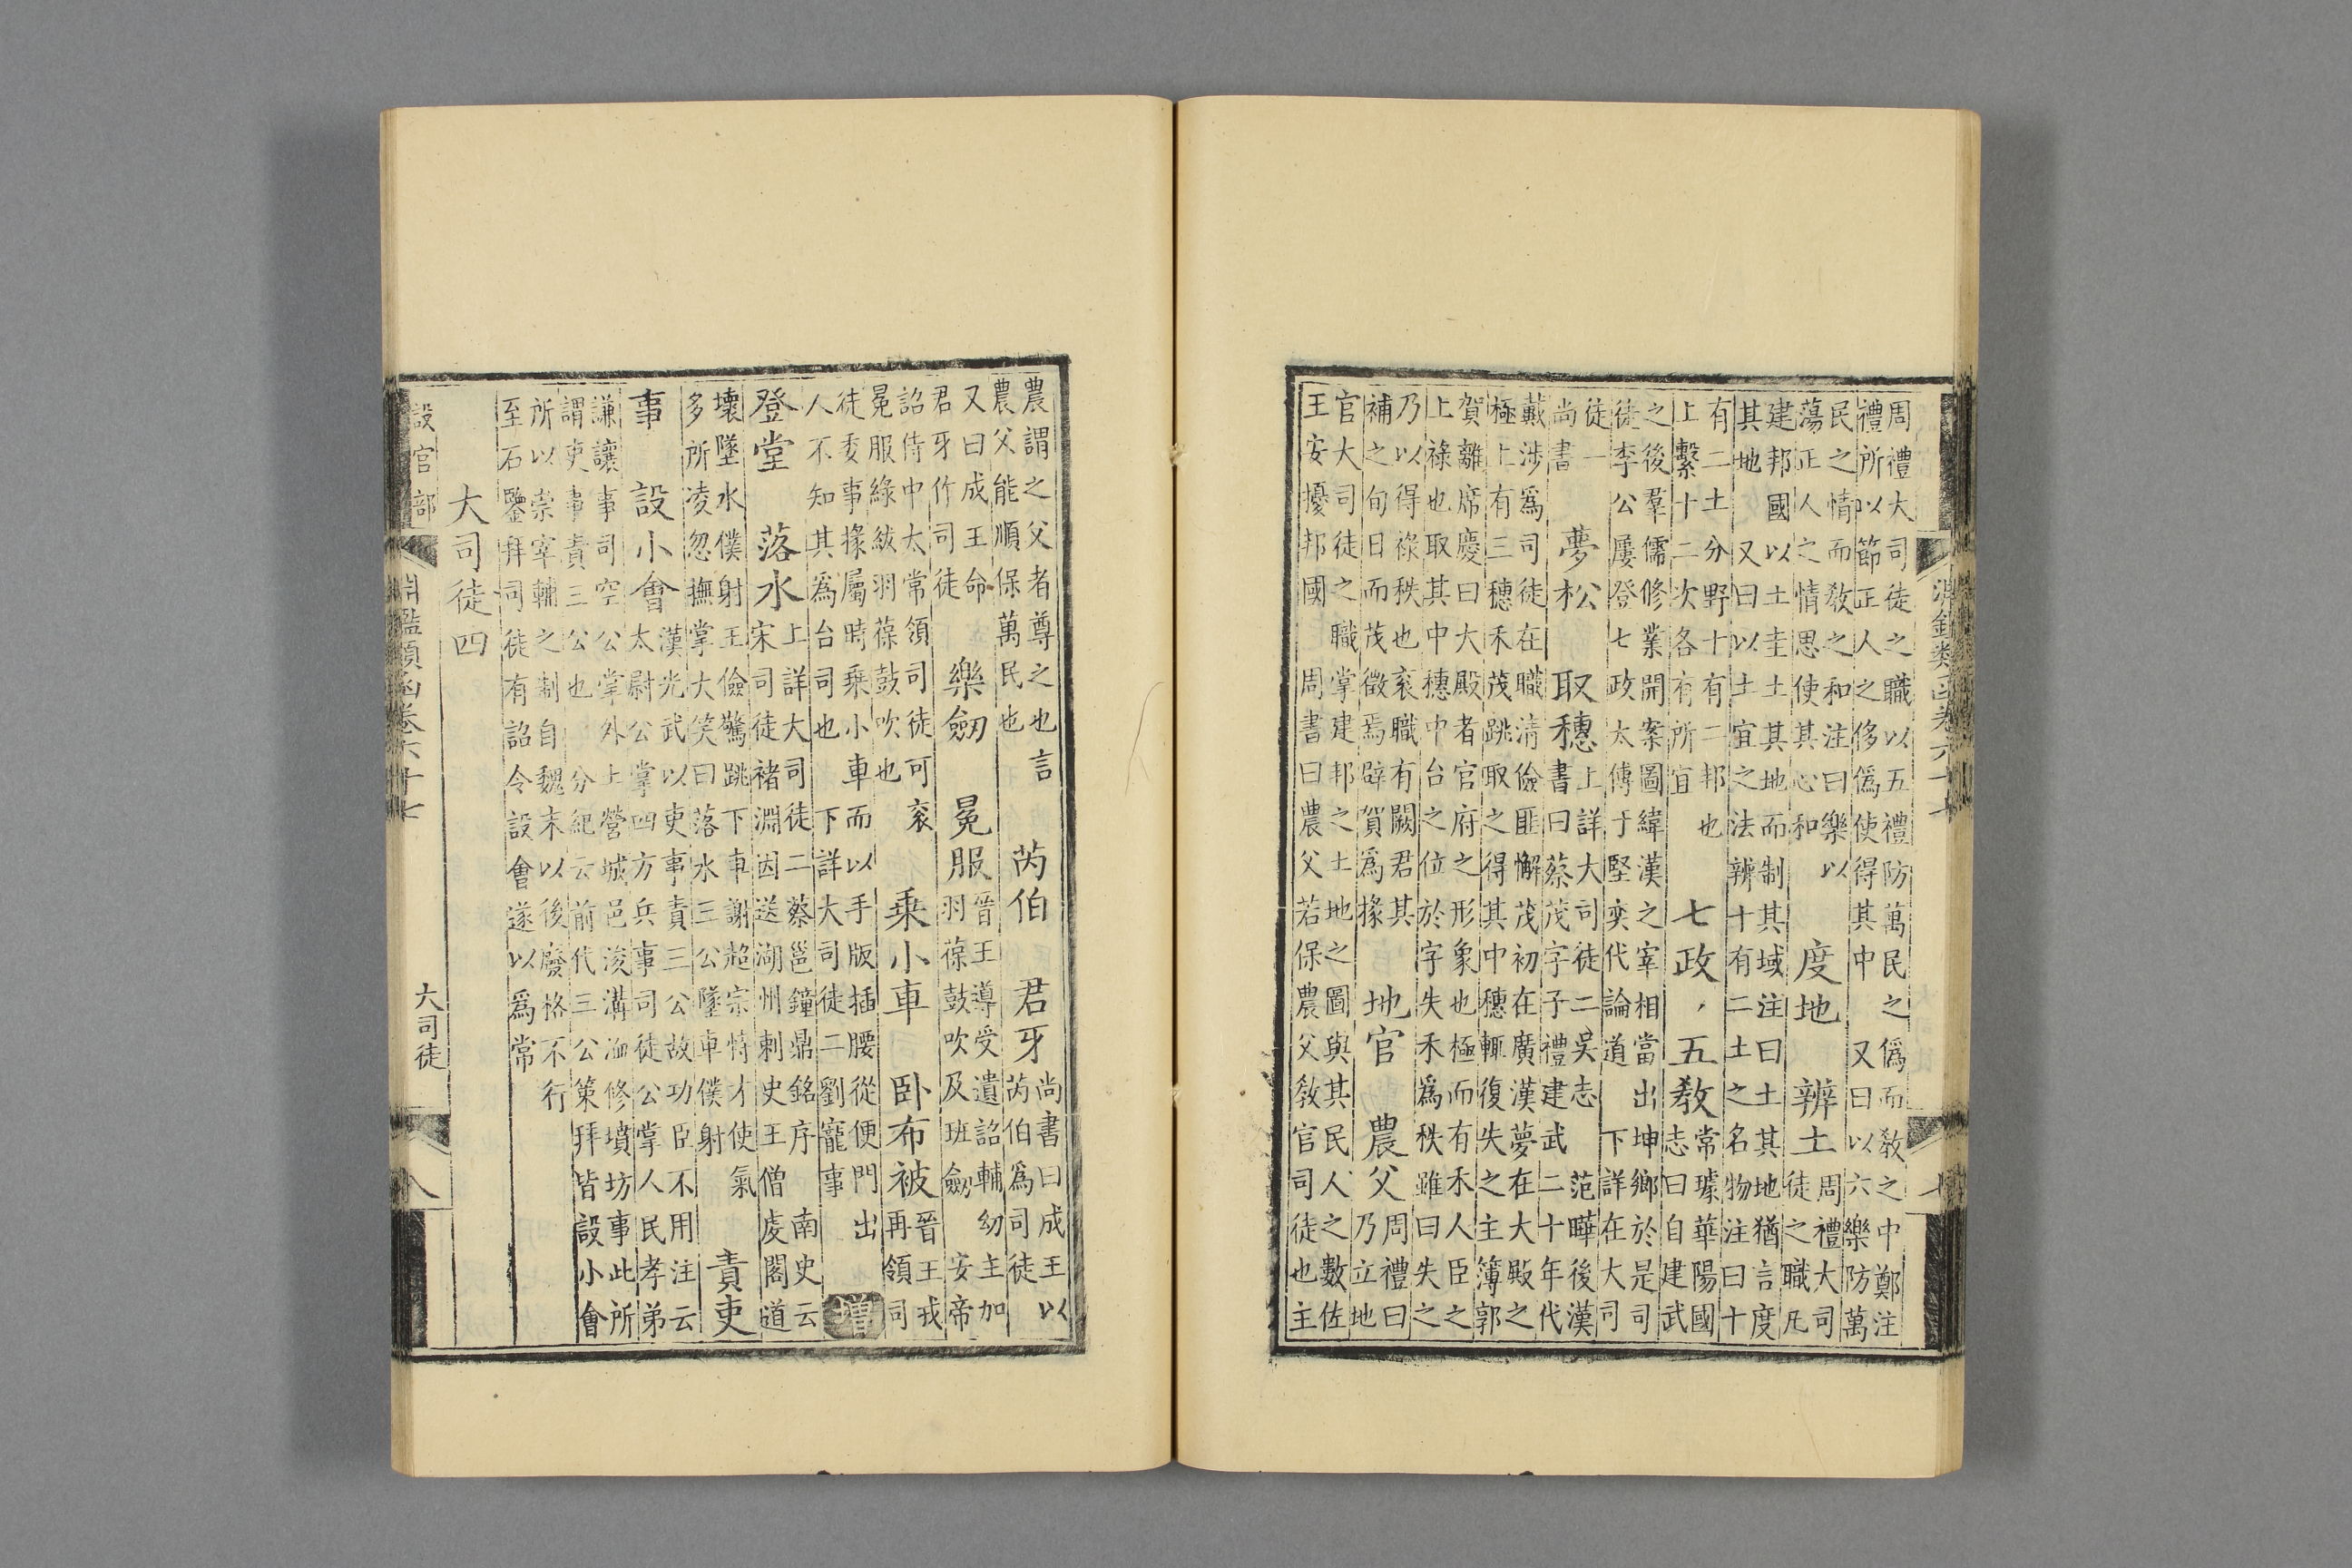 淵鑑類函卷六十七
周禮大司徒之職以五禮防萬民之偽而敎之中鄭注
禮所以節正人之侈偽使得其中 又曰以六樂防萬
民之情而敎之和注曰樂以
蕩正人之情思使其心和
度地 辨土
周禮大司
徒之職凡
建邦國以土圭土其地而制其域注曰土其地猶言度
其地 又曰以土宜之法辨十有二土之名物注曰十
有二土分野十有二邦也
上繫十二次各有所宜
七政 五敎
常璩華陽國
志曰自建武
之後羣儒修業開案圖緯漢之宰相當出坤鄉於是司
徒李公屢登七政太傅于堅奕代論道 下詳在大司
徒一
尚書
夢松 取穗
上詳大司徒二吳志 范曄後漢
書曰蔡茂字子禮建武二十年代
戴涉爲司徒在職清儉匪懈茂初在廣漢夢在大殿之
極上有三穗禾茂跳取之得其中穗輒復失之主簿郭
賀離席慶曰大殿者官府之形象也極而有禾人臣之
上祿也取其中穗中台之位於字失禾爲秩雖曰失之
乃以得祿秩也衮職有闕君其
補之旬日而茂徵焉辟賀爲掾
地官 農父
周禮曰
乃立地
官大司徒之職掌建邦之土地之圖與其民人之數佐
王安擾邦國 周書曰農父若保農父敎官司徒也主
農謂之父者尊之也言
農父能順保萬民也
芮伯 君牙
尚書曰成王以
芮伯爲司徒
又曰成王命
君牙作司徒
樂劒 冕服
晉王導受遺詔輔幼主加
羽葆鼓吹及班劒 安帝
詔侍中太常領司徒可衮
冕服綠紱羽葆鼓吹也
乗小車 卧布被
晉王戎
再領司
徒委事掾屬時乗小車而以手版插腰從便門出
人不知其爲台司也 下詳大司徒二劉寵事
增
登堂 落水
上詳大司徒二蔡邕鐘鼎銘序 南史云
宋司徒褚淵因送湖州刺史王僧虔閣道
壞墜水僕射王儉驚跳下車謝超宗恃才使氣
多所凌忽撫掌大笑曰落水三公墜車僕射
責吏
事 設小會
漢光武以吏事責三公故功臣不用注云
太尉公掌四方兵事司徒公掌人民孝弟
謙讓事司空公掌外上營城邑浚溝洫修墳坊事此所
謂吏事責三公也 分紀云前代三公策拜皆設小會
所以崇宰輔之制自魏末以後廢格不行
至石鑒拜司徒有詔令設會遂以爲常
大司徒四
設官部
淵鑑類函卷六十七
大司徒
八